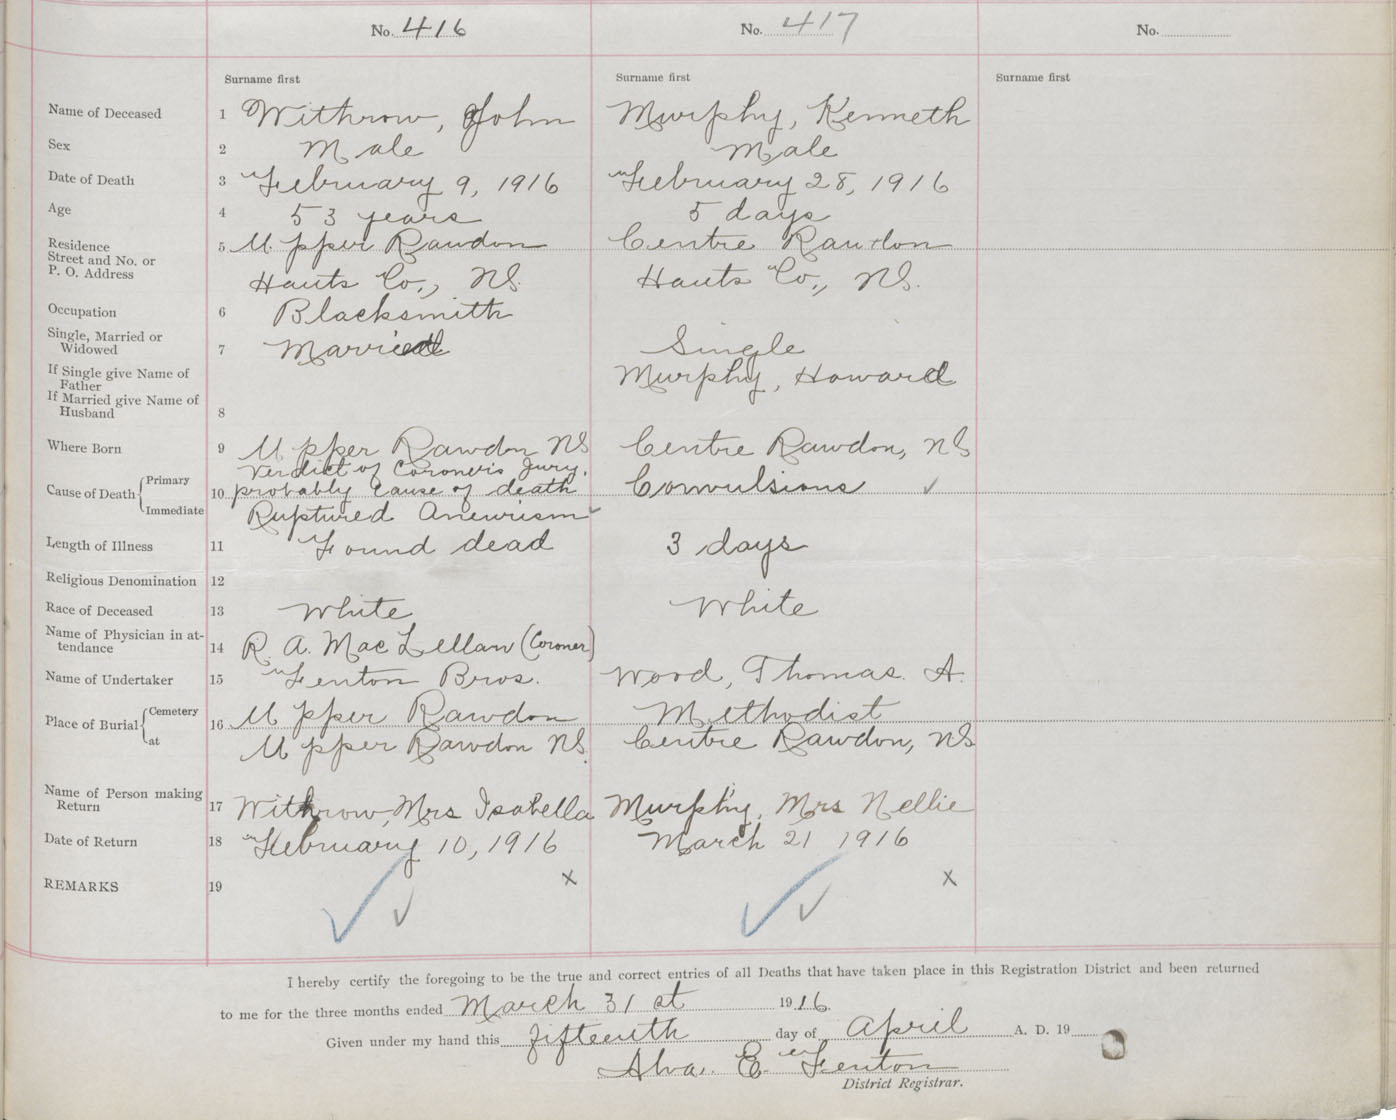 No. 416 No. 417 No.
Surname first Surname first Surname first
Name of Deceased 1 Withrow, John Murphy, Kenneth
Sex 2 Male Male
Date of Death 3 February 9, 1916 February 28, 1916
Age 4 53 years 5 days
Residence 5 Upper Rawdon Centre Rawdon
Street and No. or
P. O. Address Hants Co., NS. Hants Co., NS.
Occupation 6 Blacksmith
Single, Married or
Widowed 7 Married Single
If Single give Name of
Father Murphy, Howard
If Married give Name of
Husband 8
Where Born 9 Upper Rawdon NS Centre Rawdon, NS
Verdict of Coroner's Jury.
Cause of Death { Primary 10 probably cause of death Convulsions ✓
Immediate Ruptured Aneurism ✓
Length of Illness 11 Found dead 3 days
Religious Denomination 12
Race of Deceased 13 White White
Name of Physician in at-
tendance 14 R. A. MacLellan (Coroner)
Name of Undertaker 15 Fenton Bros. Wood, Thomas. A.
Place of Burial { Cemetery 16 Upper Rawdon Methodist
at Upper Rawdon NS. Centre Rawdon, NS
Name of Person making
Return 17 Withrow, Mrs Isabella Murphy, Mrs Nellie
Date of Return 18 February 10, 1916 March 21 1916
REMARKS 19 x x
✓ ✓ ✓ ✓
I hereby certify the foregoing to be the true and correct entries of all Deaths that have taken place in this Registration District and been returned
to me for the three months ended March 31st 1916.
Given under my hand this fifteenth day of April A. D. 19
Alva. E. Fenton
District Registrar.